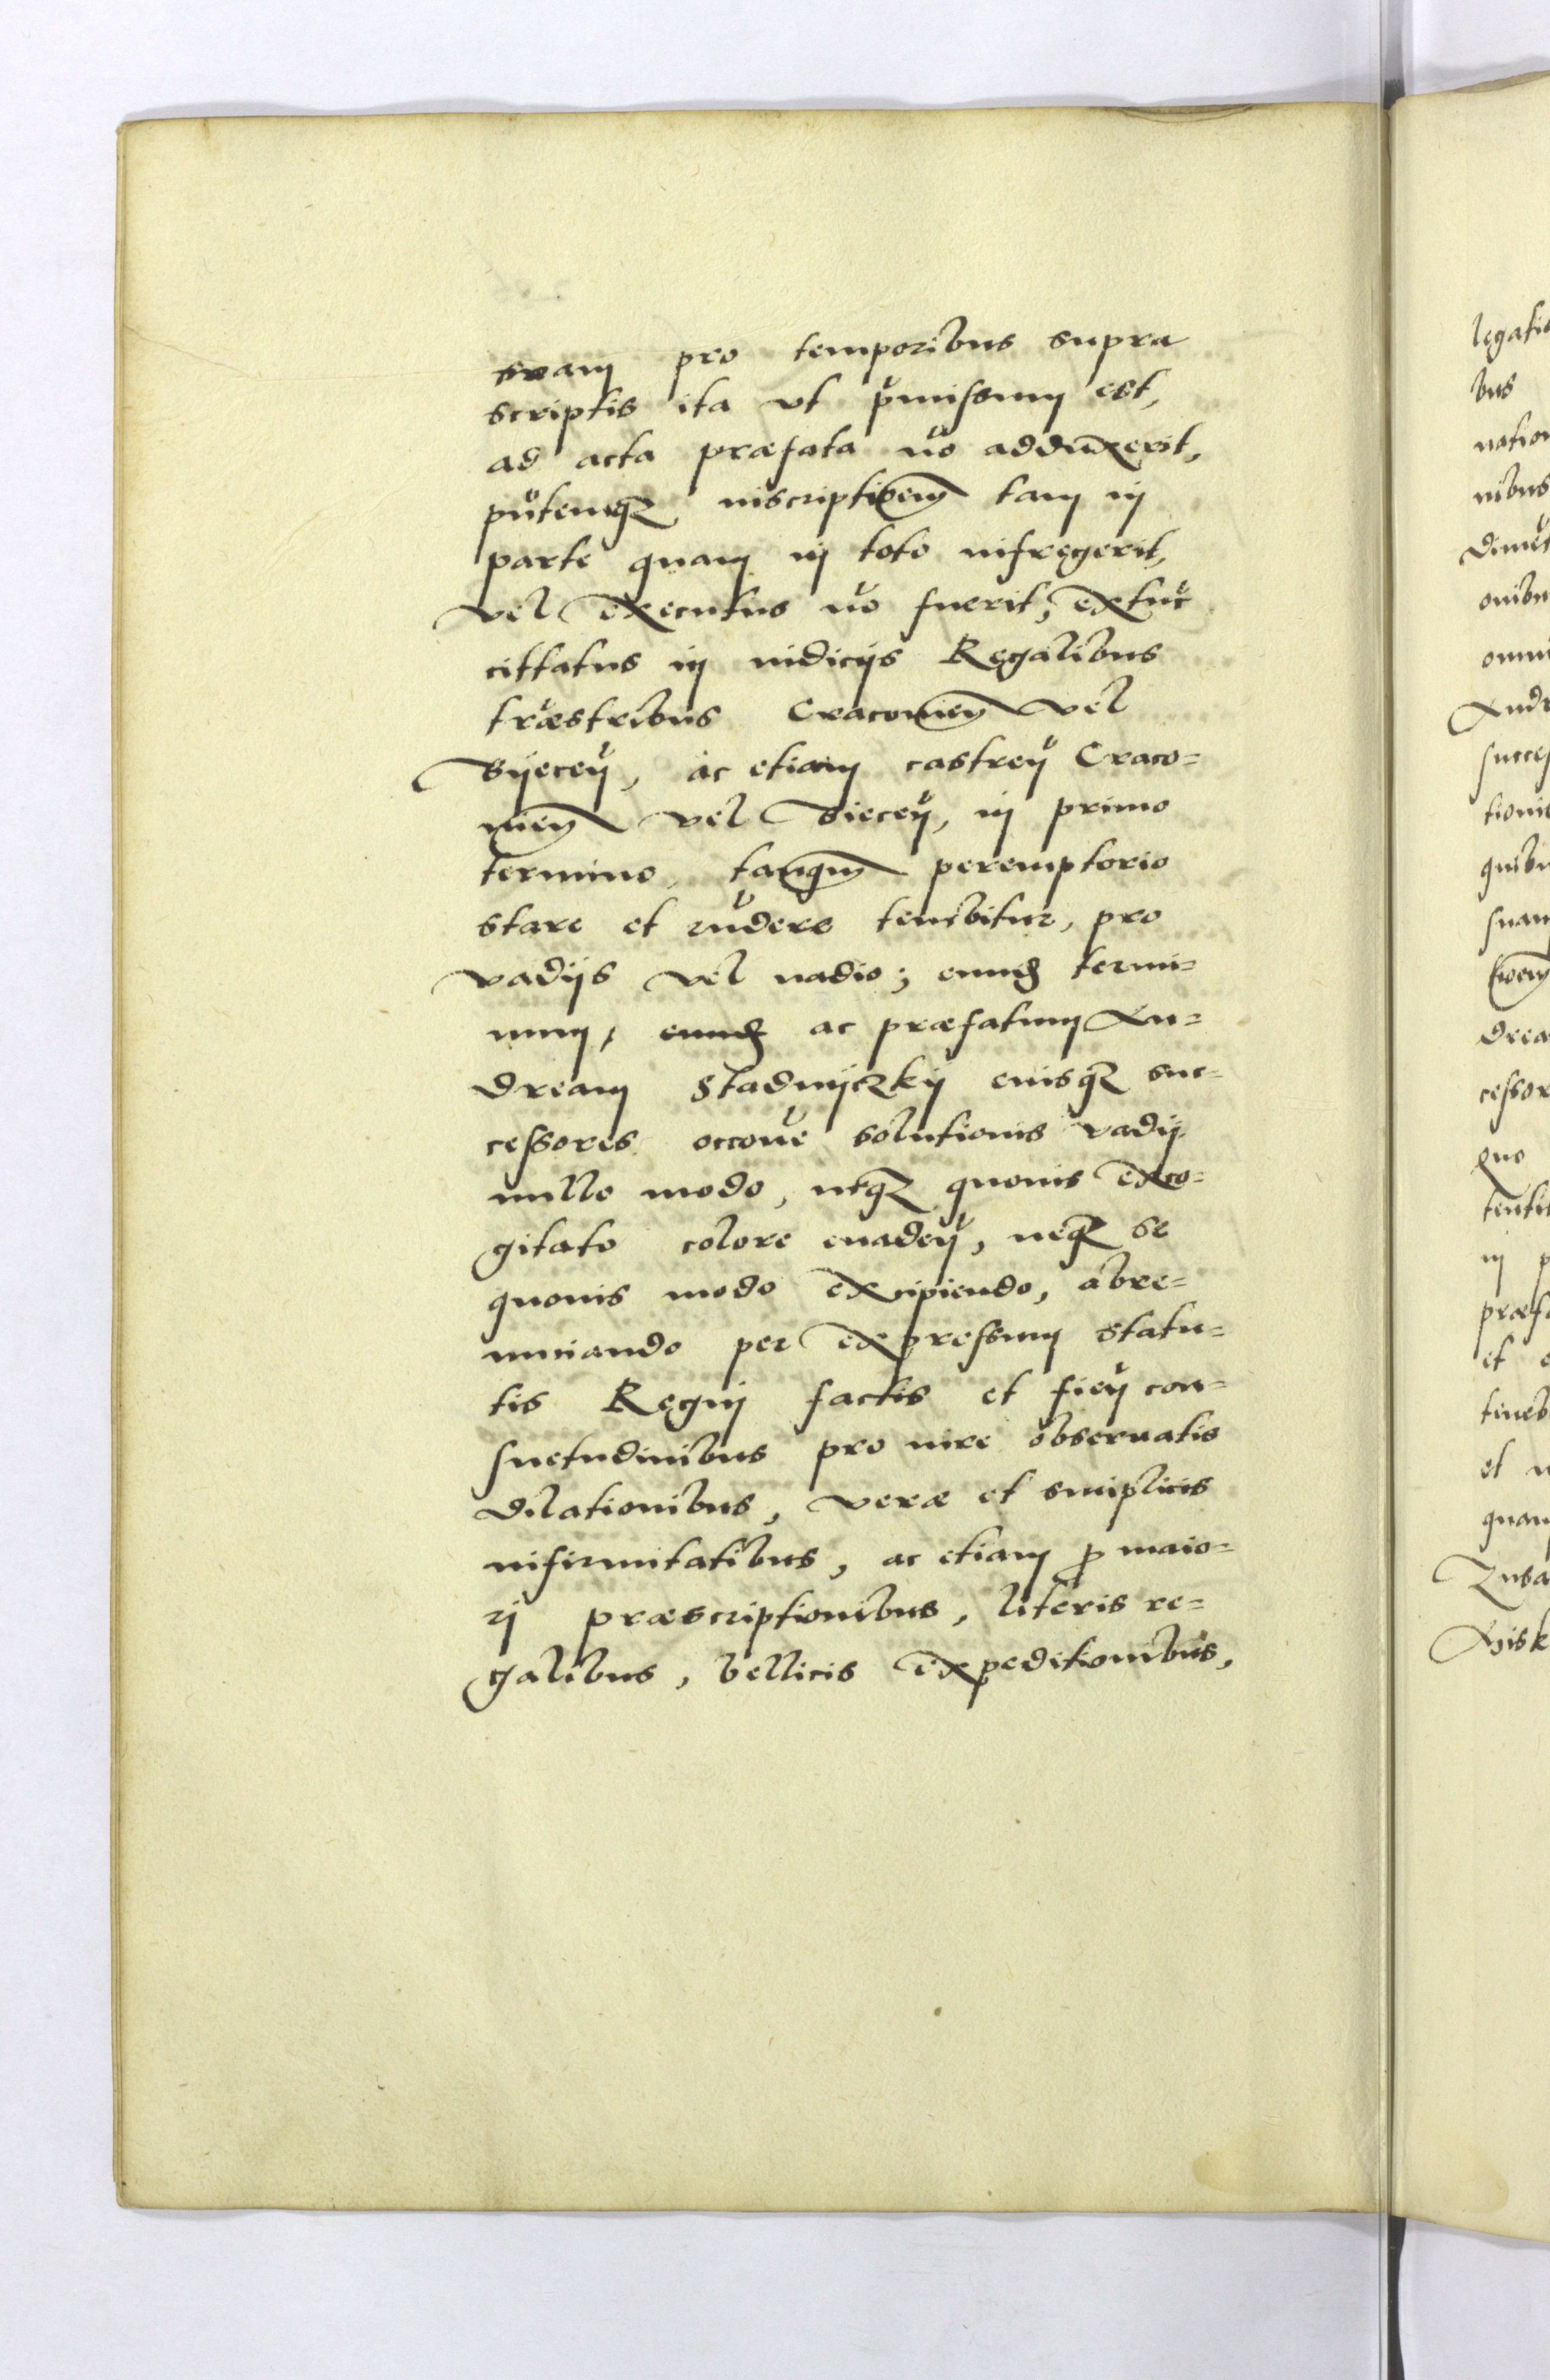 suam pro temporibus supra
scriptis ita vt p̃missum est,
ad acta præfata nõ adduxerit,
pñtemq₃ inscriptioem̃ tam in
parte quam in toto infregerit,
vel executus nõ fuerit, extũc
cittatus in iudicijs Regalibus
trãestribus Cracouien̄ vel
Bÿeceñ, ac etiam castreñ Craco=
uien̄ vel Bieceñ, in primo
termino, tanq̃m peremptorio
stare et rñdere tenebitur, pro
vadijs vel uadio; eund̃ termi=
num, ac præfatum An=
dream Stadnÿczkÿ eiusq₃ suc=
cessores occoñe solutionis vadij
nullo modo, neq₃ quouis exco=
gitato colore euadeñ, neq₃ se
quouis modo excipiendo, abre=
nunciando per expressum statu=
tis Regnj factis et fieñ con=
suetudinibus pro iure obseruatis
dilationibus, veræ et simplicis
infirmitatibus, ac etiam ꝓ maio=
rj præscriptionibus, literis re=
galibus, bellicis expeditionibus,
legatio
bus
nation
nibus
dimet
onibu
omni
Andr
succes
tionis
quibu
suam
tioem̃
drea
cessor
quo
tenti
in p
præfa
et e
teneb
et
quam